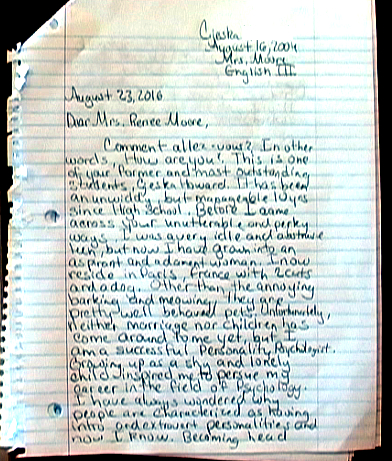 Cjeska
August 16, 2004
Mrs. Moore
English III
August 23, 2016
Dear Mrs. Renee Moore,
Comment allez-vous? In other
words, How are you? This is one
of your former and most outstanding
students, Cjeska Howard. It has been
an unwieldy, but manageable 10yrs
since High School. Before I came
across your unutterable and perky
ways, I was a very idle and obstrusive
hen, but now I have grown into an
aspirant and adamant woman. I now
reside in Paris, France with 2 cats
and a dog. Other than the annoying
barking and meowing, They are
pretty well behaved pets. Unfortunately,
neither marriage nor children has
come around to me yet, but I
am a successful Personality Psychologist.
Growing up as a shy and lonely
child inspired me to persue my
career in the field of Psychology.
I have always wondered why
people are characterized as having
intro and extrovert personalities and
now I know. Becoming head